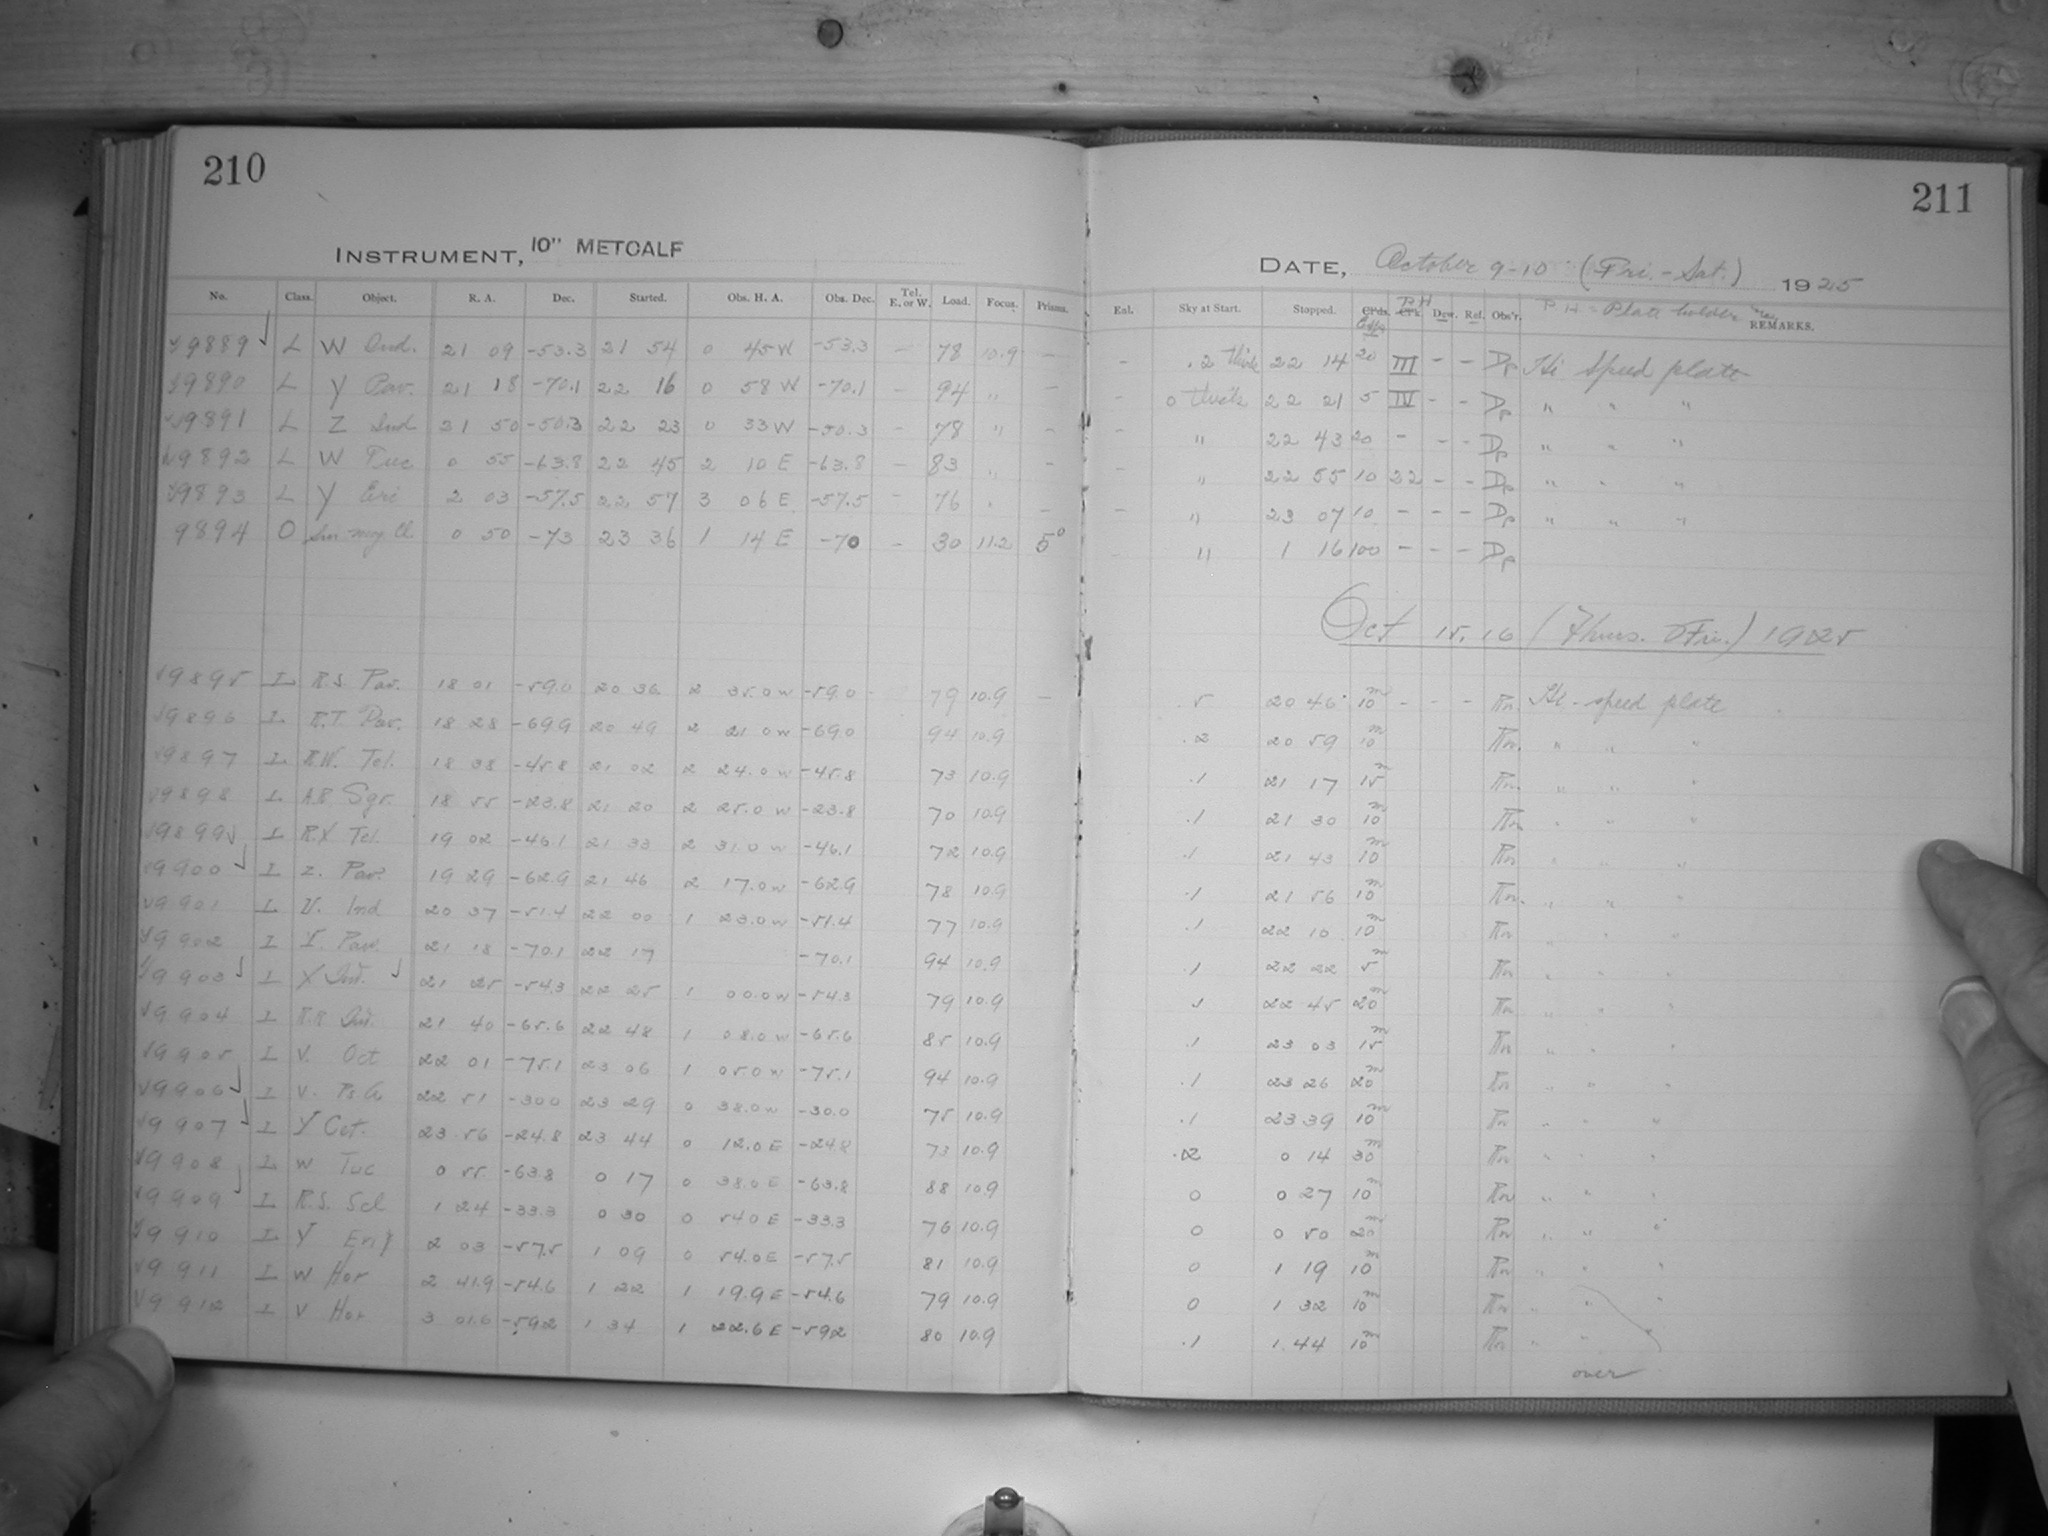 210
INSTRUMENT, 10" METCALF
No. Class. Object. R. A. Dec. Started. Obs. H. A. Obs. Dec. Tel. E. or W. Load. Focus. Prisms.
9889 L W Ind. 21 09 -53.3 21 54 0 45 W -53.3 - 78 10.9 -
9890 L Y Pav. 21 18 -70.1 22 16 0 58 W -70.1 - 94 " -
9891 L Z Ind 21 50 -50.3 22 23 0 33 W -50.3 - 78 " -
9892 L W Tuc 0 55 -63.8 22 45 2 10 E -63.8 - 83 " -
9893 L Y Eri 2 03 -57.5 22 57 3 06 E -57.5 - 76 " -
9894 O Sm. mag. Cl. 0 50 -73 23 36 1 14 E -70 - 30 11.2 5°
9895 I R.S. Pav. 18 01 -59.0 20 36 2 35.0 W -59.0 79 10.9 -
9896 I R.T. Pav. 18 28 -69.9 20 49 2 21.0 W -69.0 94 10.9
9897 I R.W. Tel. 18 38 -45.8 21 02 2 24.0 W -45.8 73 10.9
9898 I A.R Sgr. 18 55 -23.8 21 20 2 25.0 W -23.8 70 10.9
9899 I R.X Tel. 19 02 -46.1 21 33 2 31.0 W -46.1 72 10.9
9900 I Z. Pav. 19 29 -62.9 21 46 2 17.0 W -62.9 78 10.9
9901 I V. Ind 20 37 -51.4 22 00 1 23.0 W -51.4 77 10.9
9902 I Y. Pav. 21 18 -70.1 22 17 -70.1 94 10.9
9903 I X Ind. 21 25 -54.3 22 25 1 00.0 W -54.3 79 10.9
9904 I R.R Ind. 21 40 -65.6 22 48 1 08.0 W -65.6 85 10.9
9905 I V. Oct 22 01 -75.1 23 06 1 05.0 W -75.1 94 10.9
9906 I V. PsA 22 51 -30.0 23 29 0 38.0 W -30.0 75 10.9
9907 I Y Cet. 23 56 -24.8 23 44 0 12.0 E -24.8 73 10.9
9908 I W Tuc 0 55 -63.8 0 17 0 38.0 E -63.8 88 10.9
9909 I R.S. Scl 1 24 -33.3 0 30 0 54.0 E -33.3 76 10.9
9910 I Y Eri 2 03 -57.5 1 09 0 54.0 E -57.5 81 10.9
9911 I W Hor 2 41.9 -54.6 1 22 1 19.9 E -54.6 79 10.9
9912 I V Hor 3 01.6 -59.2 1 34 1 22.6 E -59.2 80 10.9
211
DATE, October 9-10 (Fri.-Sat.) 1925
Enl. Sky at Start. Stopped. Crds. Exp Crk PH Dew. Ref. Obs'r. PH = Plate holder REMARKS.
- .2 thick 22 14 20 III - - Dp Hi Speed plate
- 0 thick 22 21 5 IV - - Dp " " "
- " 22 43 20 - - - Dp " " "
- " 22 55 10 22 - - Dp " " "
- " 23 07 10 - - - Dp " " "
" 1 16 100 - - - Dp
Oct 15.16 (Thurs. & Fri.) 1925
.5 20 46 10m - - - Rn Hi-speed plate
.2 20 59 10m Rn. " " "
.1 21 17 15m Rn. " " "
.1 21 30 10m Rn " " "
.1 21 43 10m Rn " " "
.1 21 56 10m Rn. " " "
.1 22 10 10m Rn " " "
.1 22 22 5m Rn " " "
.1 22 45 20m Rn " " "
.1 23 03 15m Rn " " "
.1 23 26 20m Rn " " "
.1 23 39 10m Rn " " "
.2 0 14 30m Rn " " "
0 0 27 10m Rn " " "
0 0 50 20m Rn " " "
0 1 19 10m Rn " " "
0 1 32 10m Rn " " "
.1 1.44 10m Rn " "
over